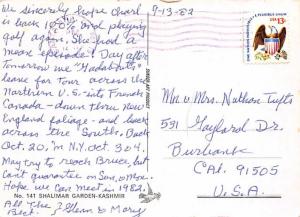 We sincerely hope Charl
is back 100% and playing
golf again. She had a
mean episode! Day after
Tomorrow we
leave for Tour across the
Northern U.S. - into French
Canada - down thru New
England foliage - and back
across the South. Back
Oct. 20, in N.Y. Oct. 3 & 4.
May try to reach Bruce, but
Can't guarantee on Son, & Mom.
Hope we can meet in 1982.
All the
Best Glenn & Mary
9-13-82
No. 141 SHALIMAR GARDEN-KASHMIR
USA 13c
Mr. & Mrs. Nathan Tufts
531 Gaylord Dr.
Burbank
Cal. 91505
U.S.A.